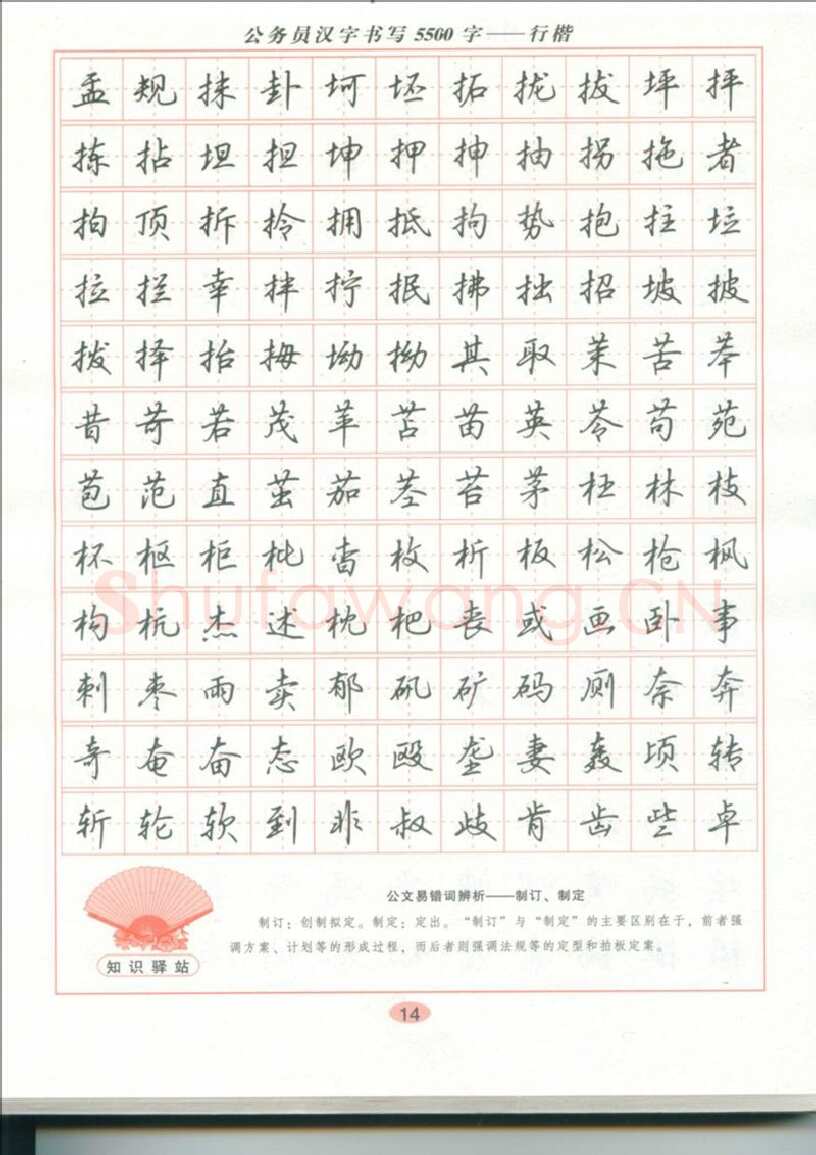 公务员汉字书写5500字——行楷
盂规抹卦坷坯拓拢拔坪抨
拣拈坦担坤押抻抽拐拖者
拍顶拆拎拥抵拘势抱拄垃
拉拦幸拌拧抿拂拙招坡披
拨择抬拇坳拗其取茉苦苯
昔苛若茂苹苫苗英苓苟苑
苞范直茁茄茎苔茅枉林枝
杯枢柜枇杳枚析板松枪枫
构杭杰述枕杷丧或画卧事
刺枣雨卖郁矾矿码厕奈奔
奇奄奋态欧殴垄妻轰顷转
斩轮软到非叔歧肯齿些卓
Shufawang.CN
公文易错词辨析——制订、制定
制订：创制拟定。制定：定出。“制订”与“制定”的主要区别在于，前者强
调方案、计划等的形成过程，而后者则强调法规等的定型和拍板定案。
知识驿站
14